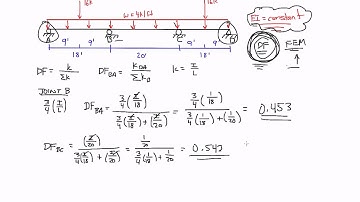 16k 16k
w = 4k/ft EI = constant
A B C D
9' 9' 9' 9' DF FEM
18' 20' 18'
DF = k/Σk DF_BA = K_BA/Σk_B k = I/L
JOINT B
3/4 (I/L) DF_BA = 3/4 (I/18) / (3/4 (I/18) + (I/20)) = 3/4 (1/18) / (3/4 (1/18) + (1/20)) = 0.453
DF_BC = (I/20) / (3/4 (I/18) + (I/20)) = 1/20 / (3/4 (1/18) + 1/20) = 0.547